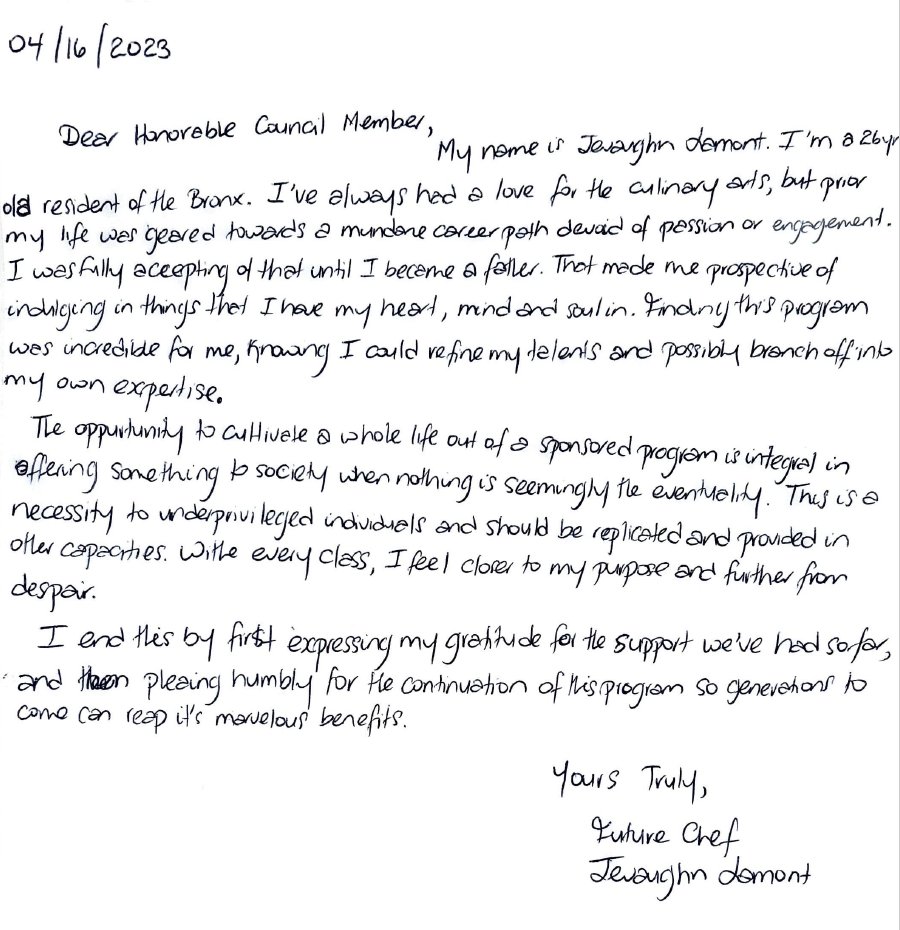 04/16/2023
Dear Honorable Council Member,
My name is Jevaughn Lamont. I'm a 26yr
old resident of the Bronx. I've always had a love for the culinary arts, but prior
my life was geared towards a mundane career path devoid of passion or engagement.
I was fully accepting of that until I became a father. That made me prospective of
indulging in things that I have my heart, mind and soul in. Finding this program
was incredible for me, knowing I could refine my talents and possibly branch off into
my own expertise.
The oppurtunity to cultivate a whole life out of a sponsored program is integral in
offering something to society when nothing is seemingly the eventuality. This is a
necessity to underprivileged individuals and should be replicated and provided in
other capacities. Withe every class, I feel closer to my purpose and further from
despair.
I end this by first expressing my gratitude for the support we've had so far,
and then pleaing humbly for the continuation of this program so generations to
come can reap it's marvelous benefits.
Yours Truly,
Future Chef
Jevaughn Lamont